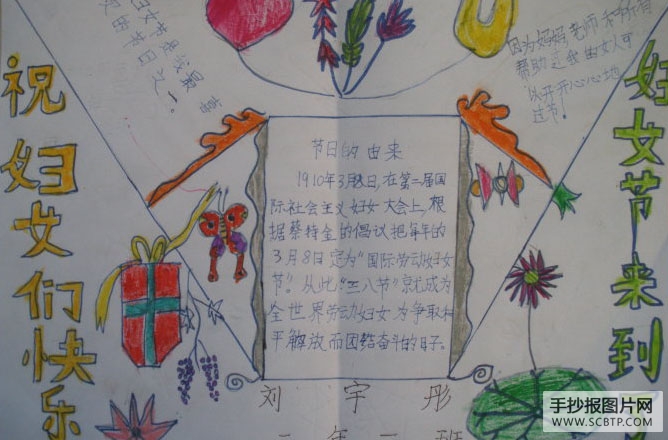 祝妇女们快乐
妇女节是我最喜
欢的节日之一。
因为妈妈老师
帮助
节!
妇女节来到
节日的由来
1910年3月8日,在第二届国
际社会主义妇女大会上,根
据蔡特金的倡议把每年的
3月8日定为“国际劳动妇女
节”。从此“三八节”京尤成为
全世界劳动妇女为争取和
平解放而团结奋斗的日子。
刘宇彤
一年一班
手抄报图片网
WWW.SCBTP.COM